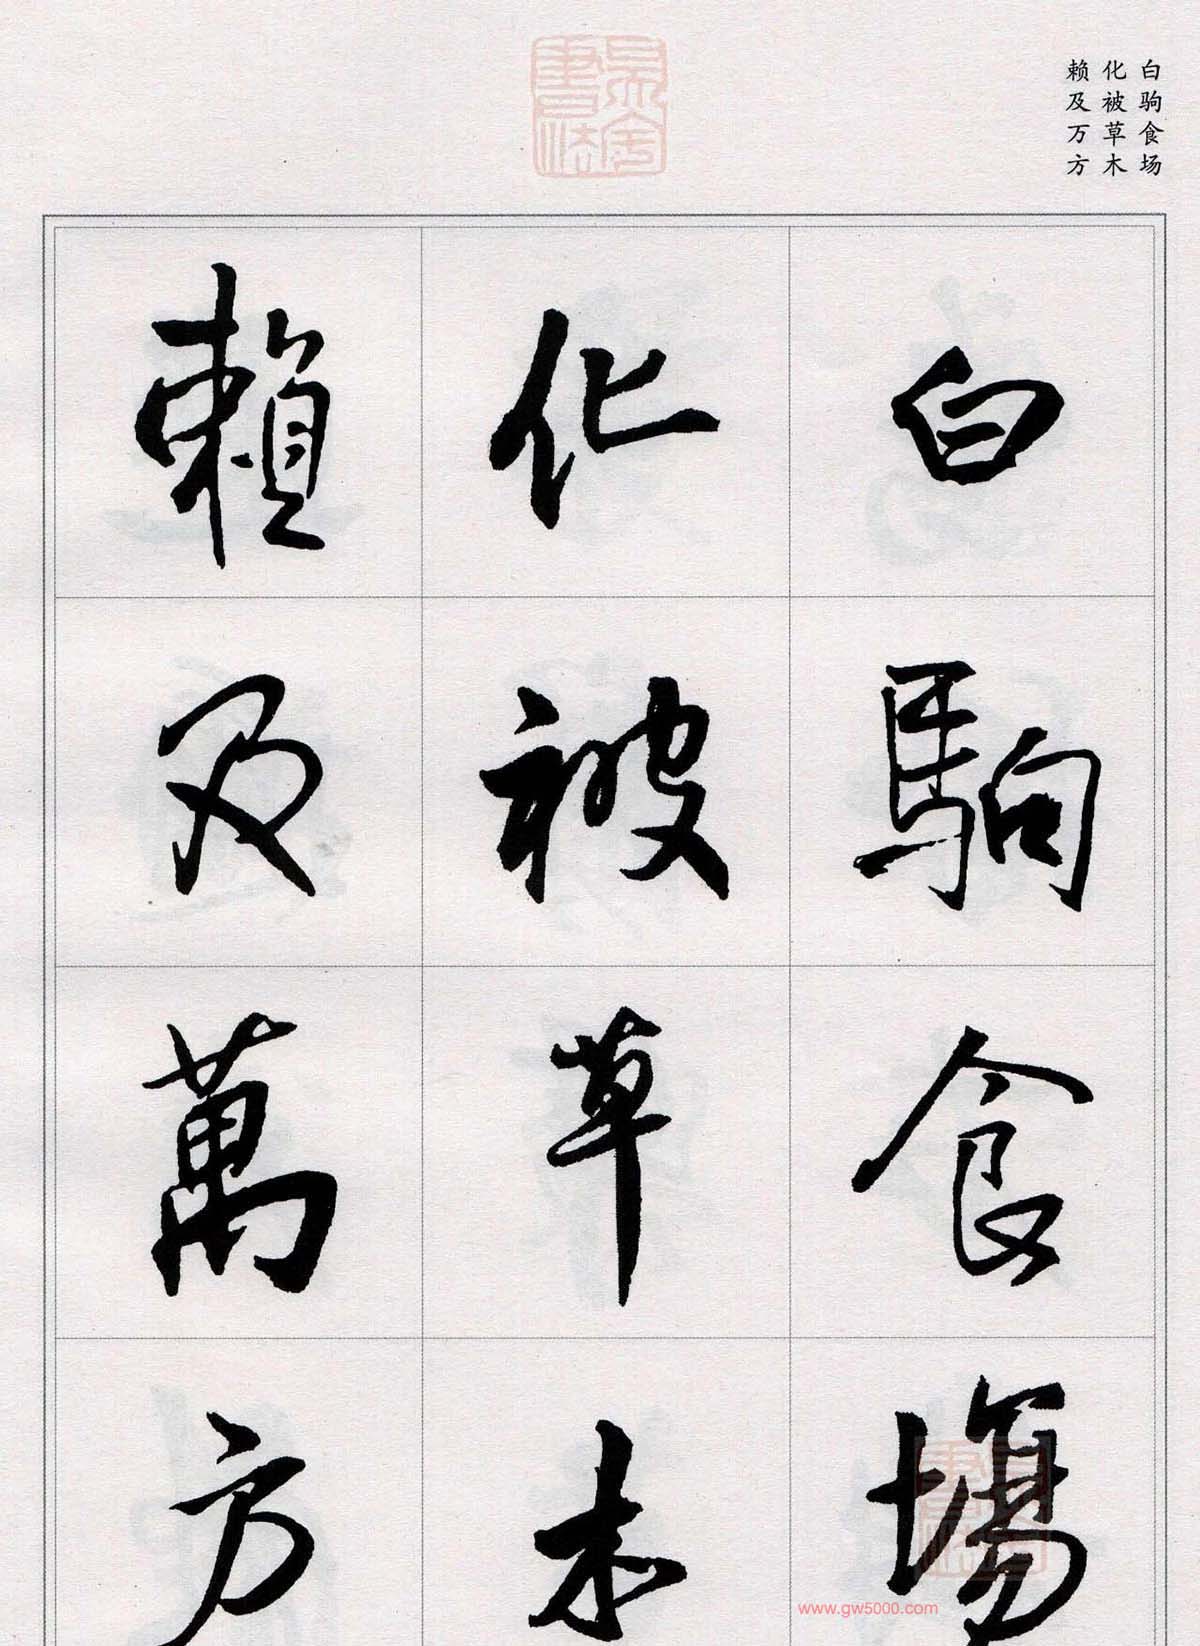 白驹食场
化被草木
赖及万方
白駒食場
化被草木
賴及萬方
www.gw5000.com